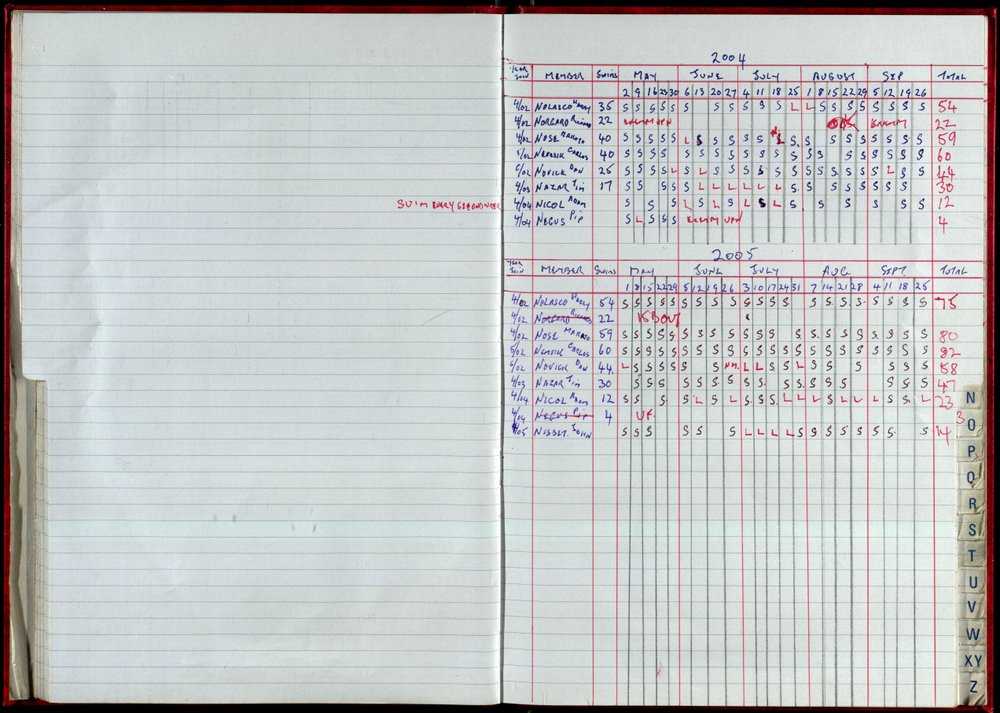 2004
YEAR JOIN MEMBER SWIMS MAY JUNE JULY AUGUST SEP TOTAL
2 9 16 23 30 6 13 20 27 4 11 18 25 1 8 15 22 29 5 12 19 26
4/02 NOLASCO 35 S S S S S S S S S S S L L S S S S S S S S 54
4/02 NORGARD 22 22
4/02 NOSE 40 S S S S S L S S S S S S L S S S S S S S S S 59
5/02 CARLOS 40 S S S S S S S S S S S S S S S S S S S S S 60
6/02 NOVICK DAN 25 S S S S L S L S S S S S S S S S S S L S S 44
4/03 NAZAR TIM 17 S S S S S L L L L L S S S S S S S S 30
SWIM EVERY SECOND WEEK
4/04 NICOL ADAM S S S L S L S L S L S S S S S S 12
4/04 NEGUS PIP S L S S S 4
2005
YEAR JOIN MEMBER SWIMS MAY JUNE JULY AUG SEPT TOTAL
1 8 15 22 29 5 12 19 26 3 10 17 24 31 7 14 21 28 4 11 18 25
4/02 NOLASCO 54 S S S S S S S S S S S S S S S S S S S S S 75
4/02 NORGARD 22
4/02 NOSE 59 S S S S S S S S S S S S S S S S S S S S S 80
5/02 CARLOS 60 S S S S S S S S S S S S S S S S S S S S S S 82
6/02 NOVICK DAN 44 L S S S S S S L L S S L S S S S S 58
4/03 NAZAR TIM 30 S S S S S S S S S S S S S S S S 47
4/04 NICOL ADAM 12 S S S S L S L S S S L L L S L L L S S L 23
4/04 NEGUS PIP 4 3
4/05 NISBET JOHN S S S S S S L L L L S S S S S S S S 14
N
O
P
Q
R
S
T
U
V
W
XY
Z